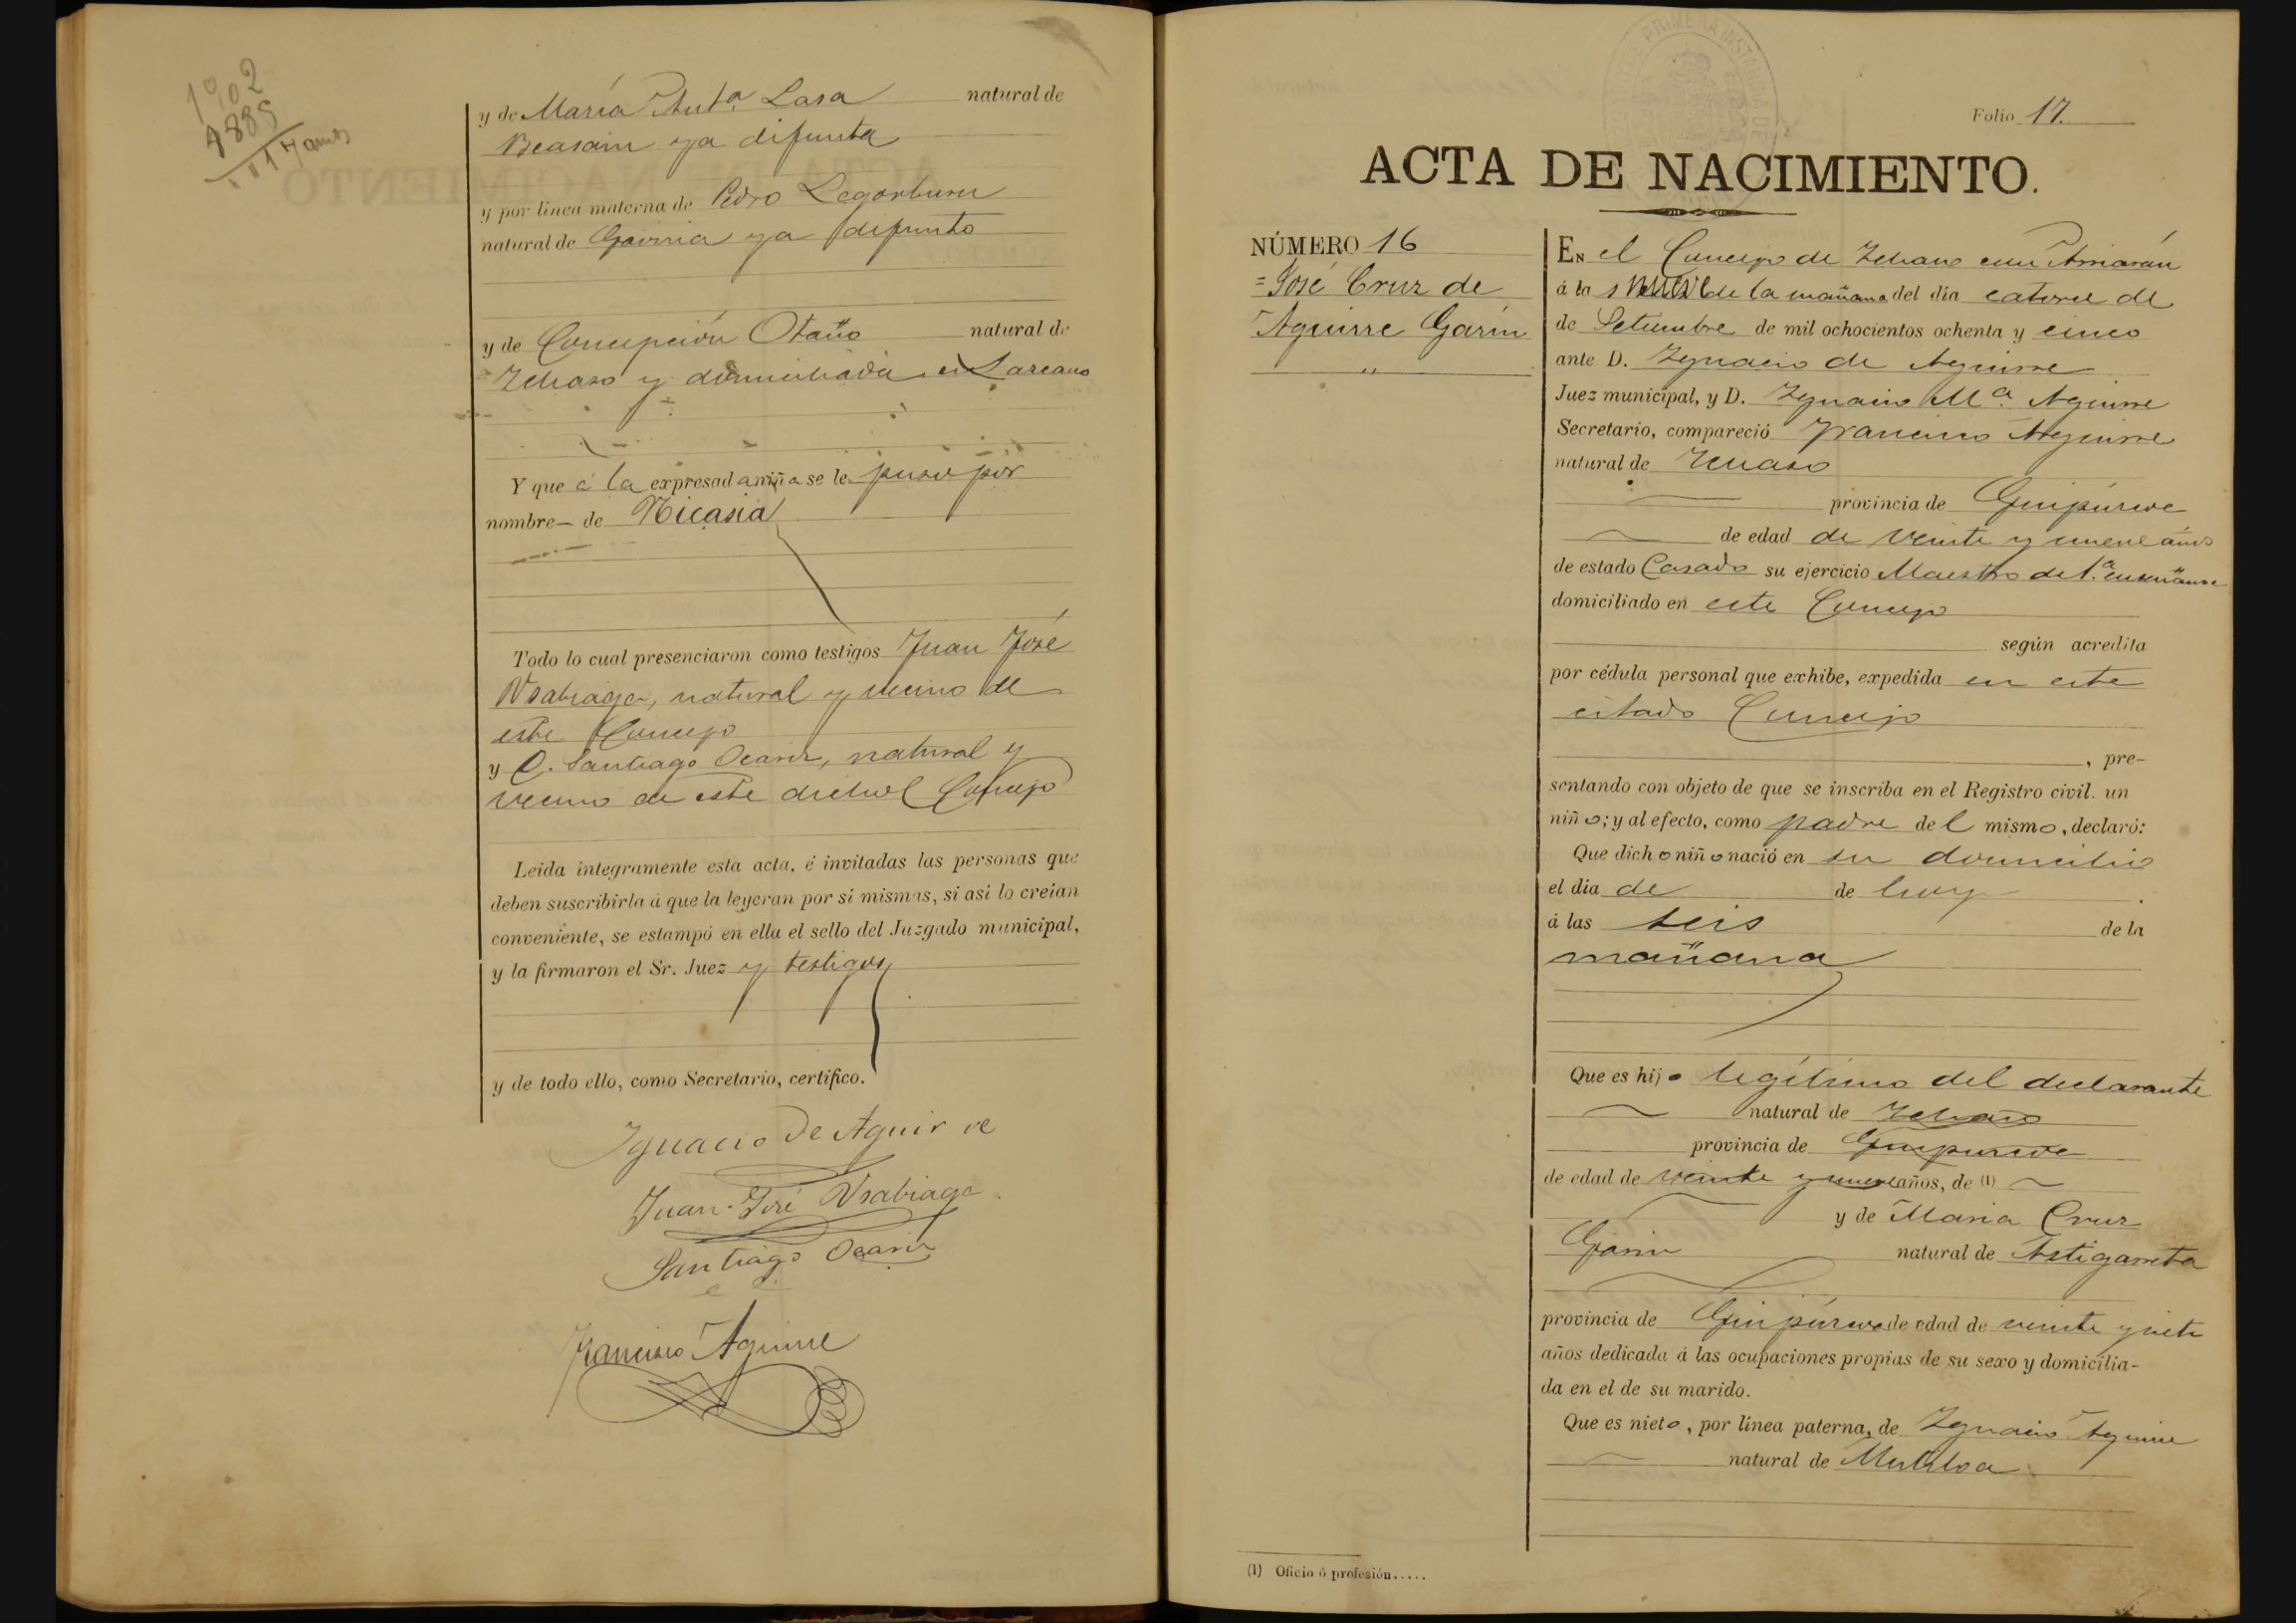 1902
1885
17 años
y de María Antª Lasa natural de
Beasain ya difunta
y por línea materna de Pedro Legorburu
natural de Gaviria ya difunto
y de Concepción Otaño natural de
Ichaso y domiciliada en Lazcano
Y que á la expresada niña se le puso por
nombre de Nicasia
Todo lo cual presenciaron como testigos Juan José
Usabiaga, natural y vecino de
este Concejo
y D. Santiago Ocariz, natural y
vecino de este dicho Concejo
Leida íntegramente esta acta, é invitadas las personas que
deben suscribirla á que la leyeran por sí mismas, si así lo creían
conveniente, se estampó en ella el sello del Juzgado municipal,
y la firmaron el Sr. Juez y testigos
y de todo ello, como Secretario, certifico.
Ygnacio de Aguirre
Juan José Usabiaga
Santiago Ocariz
Francisco Aguirre
Folio 17.
ACTA DE NACIMIENTO.
NÚMERO 16
José Cruz de
Aguirre Garin
EN el Concejo de Ichaso con Arriarán
á las nueve de la mañana del día catorce de
de Setiembre de mil ochocientos ochenta y cinco
ante D. Ygnacio de Aguirre
Juez municipal, y D. Ygnacio Mª Aguirre
Secretario, compareció Francisco Aguirre
natural de Ichaso
provincia de Guipúzcoa
de edad de veinte y nueve años
de estado Casado su ejercicio Maestro de 1.ª enseñanza
domiciliado en este Concejo
según acredita
por cédula personal que exhibe, expedida en este
citado Concejo
, pre-
sentando con objeto de que se inscriba en el Registro civil. un
niño; y al efecto, como padre del mismo, declaró:
Que dicho niño nació en su domicilio
el día de de hoy
á las seis de la
mañana
Que es hijo legítimo del declarante
natural de Ichaso
provincia de Guipuzcoa
de edad de veinte y nueve años, de (1)
y de Maria Cruz
Garin natural de Astigarreta
provincia de Guipúzcoa de edad de veinte y siete
años dedicada á las ocupaciones propias de su sexo y domicilia-
da en el de su marido.
Que es nieto, por línea paterna, de Ygnacio Aguirre
natural de Mutiloa
(1) Oficio ó profesión.....